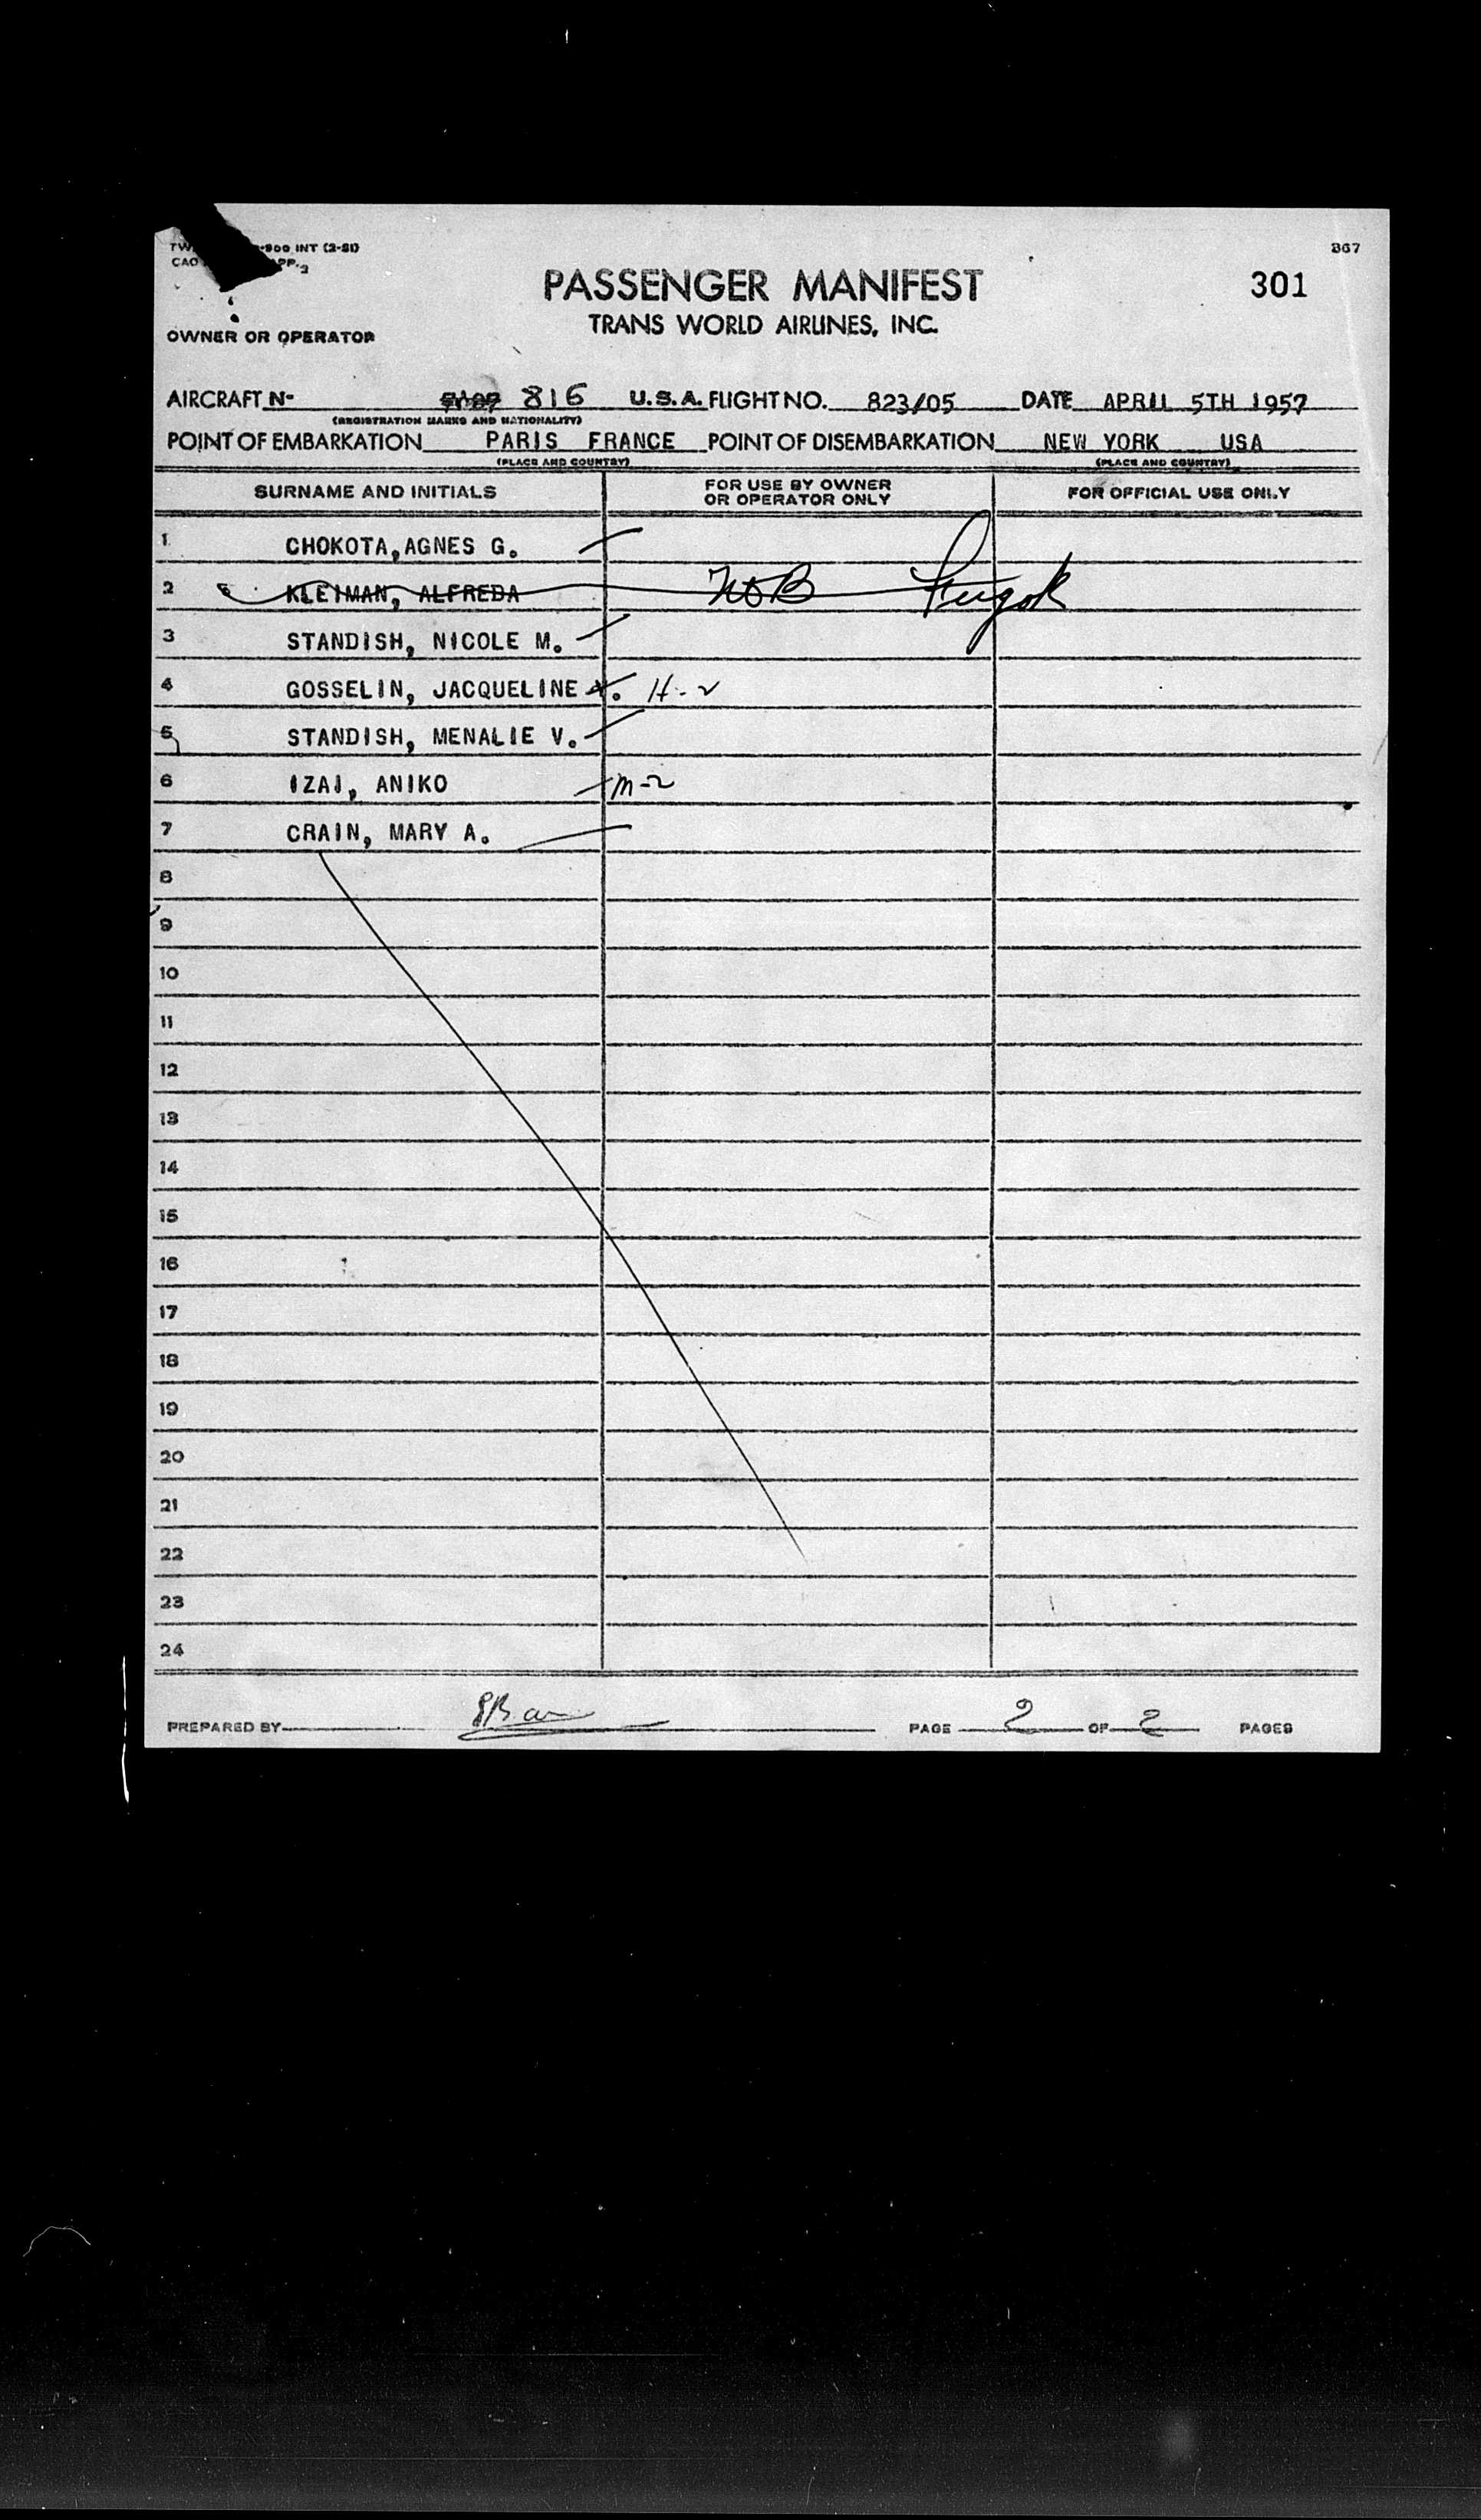 INT (2-51) 367
CAO APP. 2
PASSENGER MANIFEST 301
TRANS WORLD AIRLINES, INC.
OWNER OR OPERATOR
AIRCRAFT N- 816 U.S.A. FLIGHT NO. 823/05 DATE APRIL 5TH 1957
(REGISTRATION MARKS AND NATIONALITY)
POINT OF EMBARKATION PARIS FRANCE POINT OF DISEMBARKATION NEW YORK USA
(PLACE AND COUNTRY) (PLACE AND COUNTRY)
SURNAME AND INITIALS FOR USE BY OWNER OR OPERATOR ONLY FOR OFFICIAL USE ONLY
1 CHOKOTA, AGNES G.
2 KLEIMAN, ALFREDA NOB
3 STANDISH, NICOLE M.
4 GOSSELIN, JACQUELINE H-2
5 STANDISH, MENALIE V.
6 IZAI, ANIKO M-2
7 CRAIN, MARY A.
8
9
10
11
12
13
14
15
16
17
18
19
20
21
22
23
24
PREPARED BY PAGE 2 OF 2 PAGES